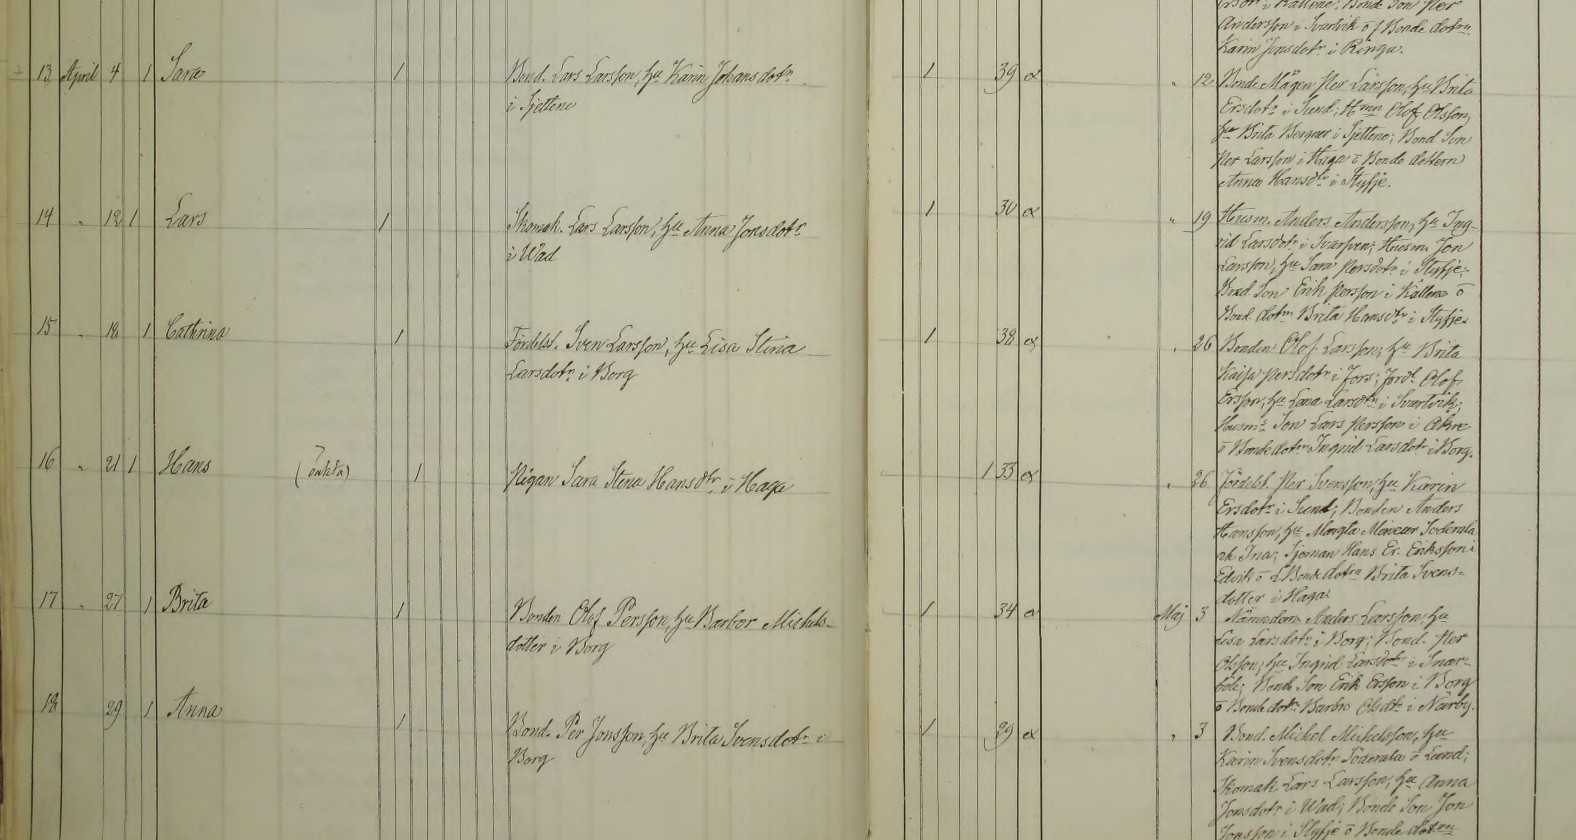 Andersson i Svartvik o. Bonde dotrn
Karin Jonsdotr i Ringa.
13 April 4 1 Sara 1 Bond. Lars Larsson, Hu Karin Johansdotr 1 39 α
i Sjettene
" 12 Bonde Mågen Per Larsson, Hu Brita
Ersdotr i Sund; Hmn Olof Olsson,
Hu Brita Bergner i Sjettene; Bond Son
Per Larsson i Haga o Bonde dottern
Anna Hansdtr i Styfje.
14 " 12 1 Lars 1 Skomak. Lars Larsson, Hu Anna Jonsdotr 1 30 α
i Wäd
" 19 Husm. Anders Andersson, Hu Ing-
rid Larsdotr i Svarfven; Husm. Jon
Larsson, Hu Sara Persdotr i Styfje;
Bond Son Erik Persson i Kättene o
Bond. dotrn Brita Hansdtr i Styfje.
15 " 18 1 Cathrina 1 Fördelst. Sven Larsson, Hu Lisa Stina 1 38 α
Larsdotr i Borg
" 26 Bonden Olof Larsson, Hu Brita
Kajsa Persdotr i Fors; Olof
Ersson, Hu Lena Larsdtr i Svartvik;
Husm:s Son Lars Persson i Åkre
o Bonde dotrn Ingrid Larsdotr i Borg.
16 " 21 1 Hans (oäkta) 1 Pigan Sara Stena Hansdtr i Haga 1 33 α
" 26 Fördelst. Per Svensson, Hu Karin
Ersdotr i Sund; Bonden Anders
Hansson, Hu Margta Söderala
Sjöman Hans Er. Eriksson i
o Bonde dotrn Brita Svens-
dotter i Haga.
17 " 27 1 Brita 1 Bonden Olof Persson, Hu Barbor Michels- 1 34 α
dotter i Borg
Maj 3 Nämndem. Anders Larsson, Hu
Lisa Larsdotr i Borg; Bond. Per
Olsson, Hu Ingrid Larsdotr i Snar-
böle; Bonde Son Erik Ersson i Borg
o Bonde dotr Barbro Olsdtr i Närby.
18 29 1 Anna 1 Bond. Per Jonsson, Hu Brita Svensdotr i 1 29 α
Borg
" 3 Bond. Mickel Mickelsson, Hu
Karin Svensdotr Söderala o Lund;
Skomak Lars Larsson, Hu Anna
Jonsdotr i Wäd; Bonde Son Jon
Jonsson i Styfje o Bonde dotrn